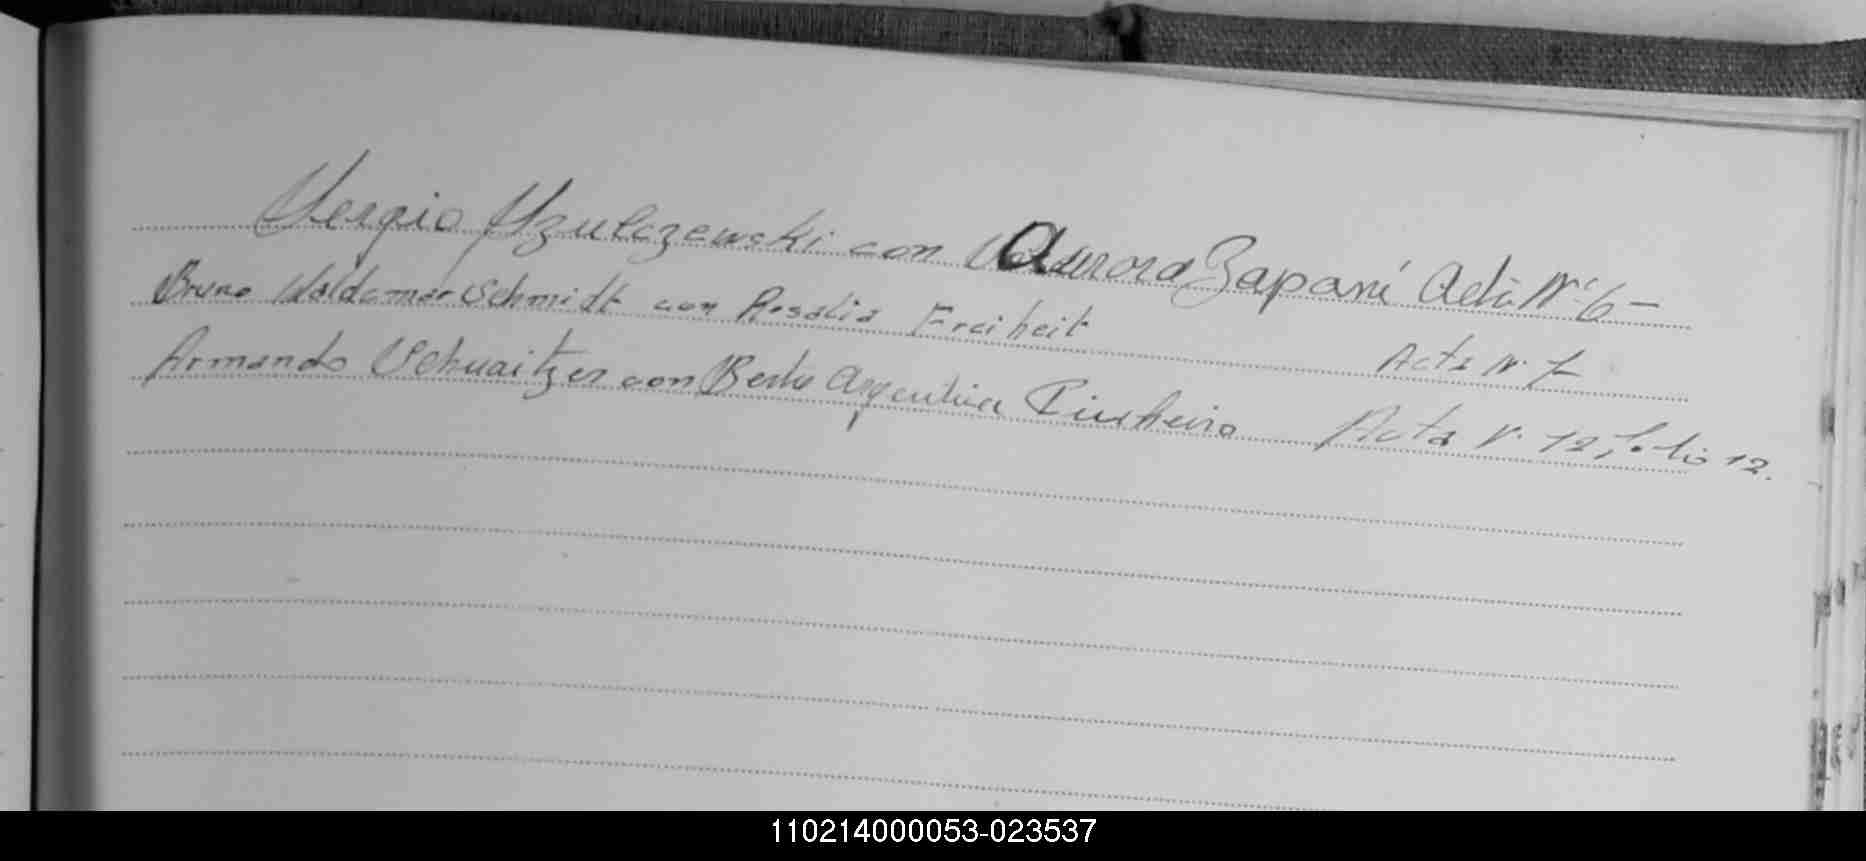 Sergio Szulczewski con Aurora Zapani Acta Nº 6-
Bruno Waldemar Schmidt con Rosalia Freiheit Acta Nº 7-
Armando Schuaitzer con Berta Argentina Pinheiro Acta Nº 12, folio 12.
110214000053-023537